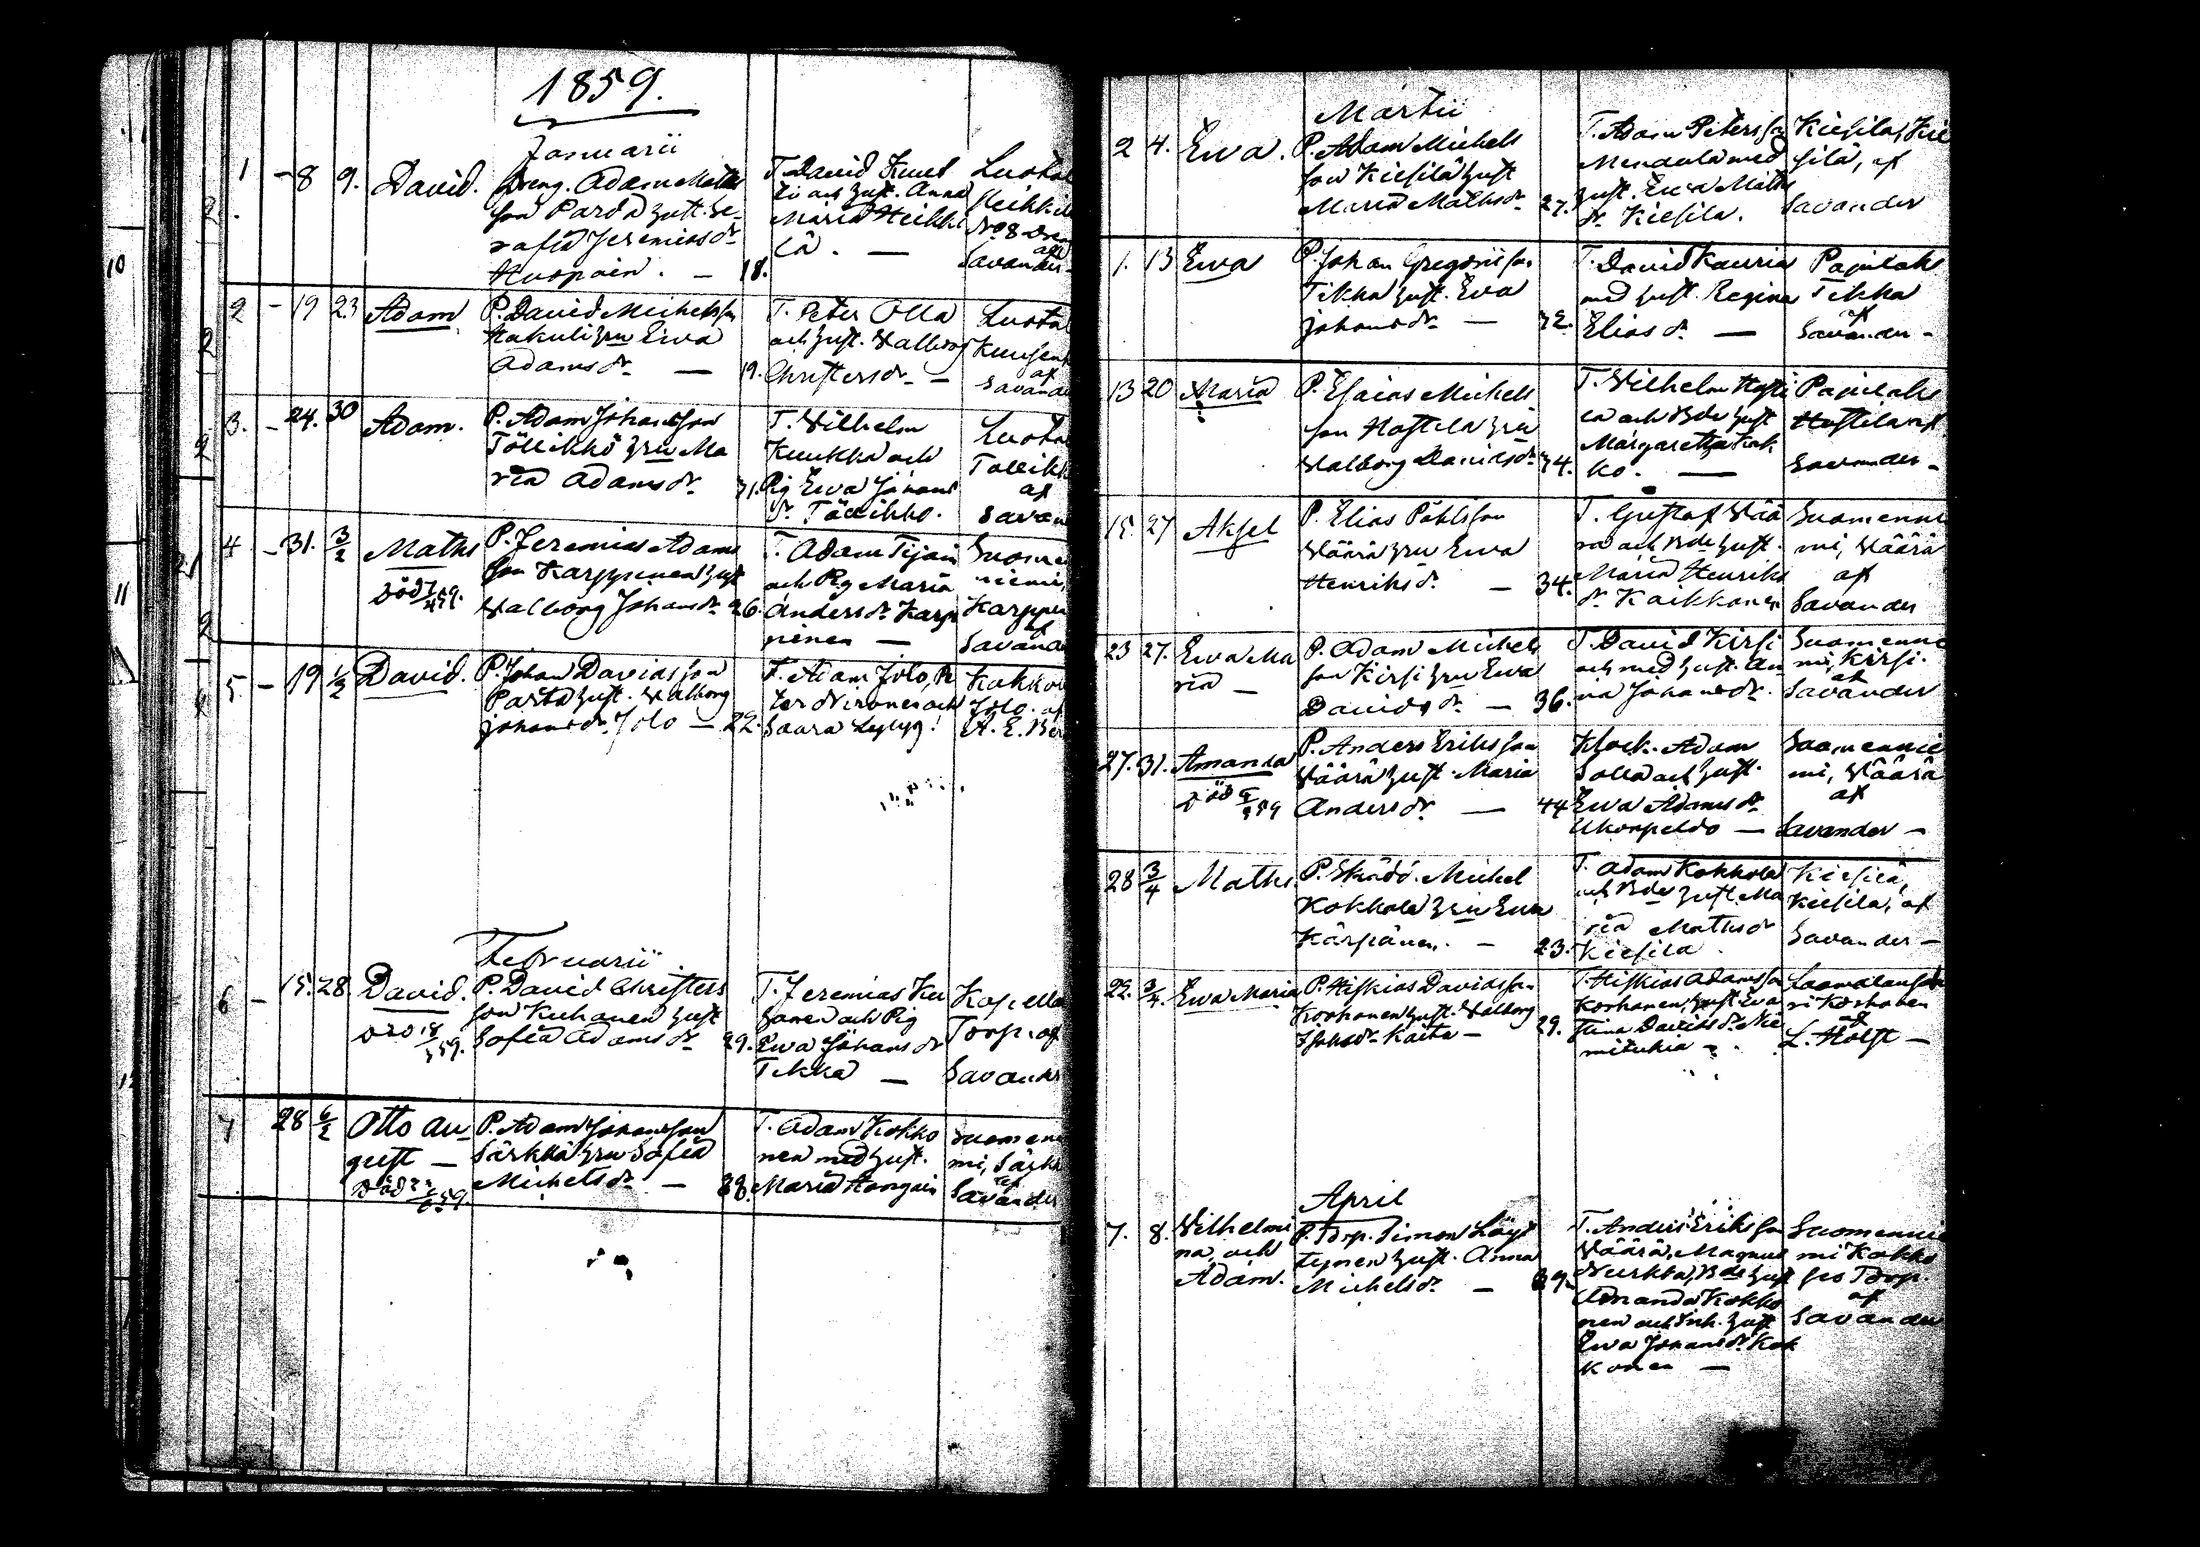 1859.
Januarii
1 - 8 9. David. Dreng. Adam Maths
son Parda hust. Se-
rafia Jeremiasdr
Huopain. - 18.
T. David Knut
och hust. Anna
Maria Heikki
lä. -
Luota
Heikkil
No 8
af
Savander
2 - 19 23 Adam P. David Michelsson
Hakuli hru Ewa
Adamsdr - 19.
T. Peter Olla
och hust. Walborg
Christersdr -
Luota
af
Savande
3. - 24. 30 Adam. P. Adam Johansson
Töllikkö hru Ma
ria Adamsdr 31.
T. Wilhelm
Kuukka och
Pig Ewa Johans
dr Töllikko.
Luota
Tollikk
af
Savan
4 - 31. 3/2 Maths P. Jeremias Adams
son Karppinen hust
Walborg Johansdr 26.
Död 7/4 59.
T. Adam Tijain
och Pig Maria
Andersdr Karp
pinen -
Suome
niemi,
Karppi
af
Savand
5 - 19 1/2 David. P. Johan Davidsson
Parta hust. Walborg
Johansdr Jolo - 22.
T. Adam Jolo, Pe
ter Nironen och
Saara
Kokko
Jolo. af
A. E.
Februarii
6 - 15. 28 David. P. David Christers
son Kuhanen hust
Sofia Adamsdr 29.
T. Jeremias Ku
hanen och Pig
Ewa Johansdr
Tikka -
Kapella
Torp. af
Savander
7 28 6/2 Otto Au-
gust -
P. Adam Johansson
Särkkä hru Sofia
Michelsdr - 38.
T. Adam Kokko
nen med hust.
Maria Hongain
Suomeni
mi, Särk
af
Savander
Martii
2 4. Ewa. P. Adam Michels
son Kiesilä hust
Maria Mathsdr 27.
T. Adam Petersson
med
hust. Ewa Maths
dr Kiesilä.
Kiesilä, Kie
silä, af
Savander
1. 13 Ewa P. Johan Gregoriison
Tikka hust. Ewa
Johansdr - 32.
T. David Kauria
med hust. Regina
Eliasdr -
Pajulaht
Tikka
af
Savander -
13 20 Maria P. Esaias Michels
son Hostila hru
Walborg Davidsdr 34.
T. Wilhelm Hosti
la och Bde hust
Margaretha Kok
ko. -
Pajulaht
Hostila af
Savander -
15. 27 Aksel P. Elias Påhlsson
Väärä hru Ewa
Henriksdr - 34.
T. Gustaf Vää
rä och Bde hust.
Maria Henriks
dr Kaikkonen
Suomennie
mi, Väärä
af
Savander
23 27. Ewa Ma
ria -
P. Adam Michels
son Kirsi hru Ewa
Davidsdr - 36.
T. David Kirsi
och med hust. An
na Johansdr.
Suomennie
mi, Kirsi.
af
Savander
27. 31. Amanda P. Anders Eriksson
Väärä hust. Maria
Andersdr - 44
Klock. Adam
Solla och hust.
Ewa Adamsdr
Ukonpeldo -
Suomennie
mi, Väärä
af
Savander -
28 3/4 Maths P. Michel
Kokkola hru Ewa
Kärpänen. - 23.
T. Adam Kokkola
och Bdes hust. Ma
ria Mathsdr
Kiesilä.
Kiesilä,
Kiesilä, af
Savander -
22. 3/4. Ewa Maria P. Hiskias Davidsson
Korhonen hust. Walborg
Johsdr Kaita - 29.
T. Hiskias Adamsson
Korhonen, hust. Ewa
Stina Davidsdr Nie
mitukia -
Korhonen
af
L. Holst -
April
7. 8. Wilhelmi
na, och
Adam.
P. Torp. Simon Löyt
tynen hust. Anna
Michelsdr - 39.
T. Anders Eriksson
Väärä, Magnus
Nurkka, Bdes hust
Amanda Kokko
nen och Inh. hust
Ewa Johansdr Kok
konen -
Suomennie
mi Kokko
Torp.
af
Savander